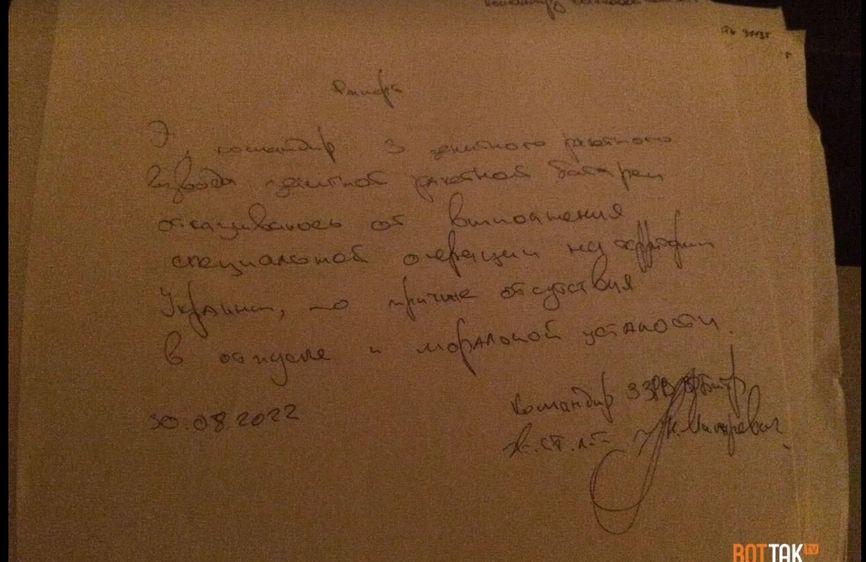 Командиру
Рапорт
Я, командир 3 зенитного ракетного
взвода зенитной ракетной батареи
отказываюсь от выполнения
специальной операции на территории
Украины, по причине отсутствия
в отпуске и моральной усталости.
30.08.2022
Командир 3 ЗРВ
ст. л-т
ВОТТАК TV